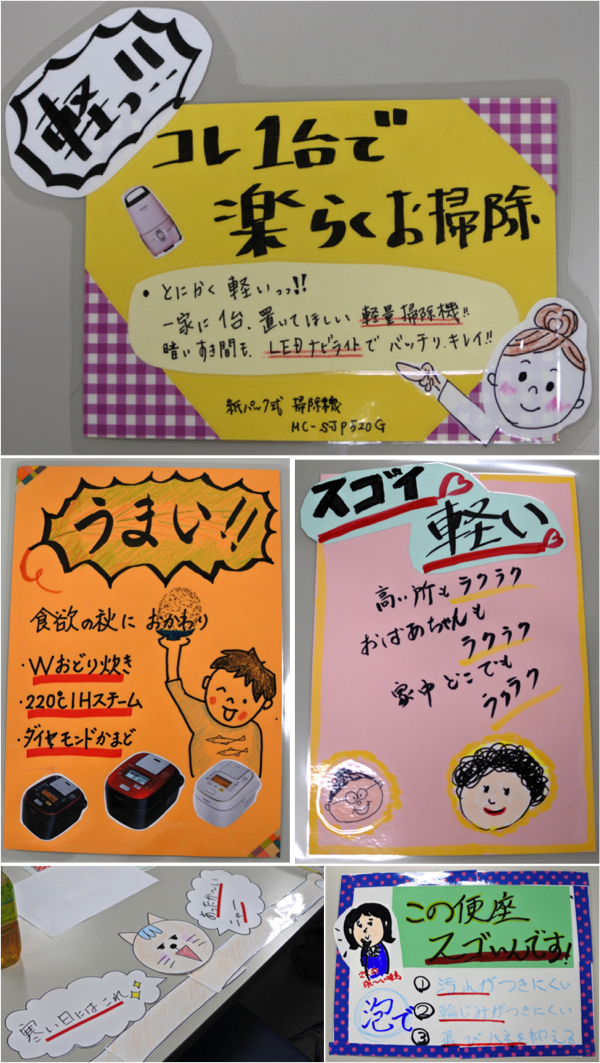 軽っ!!!
コレ1台で
楽らくお掃除
• とにかく 軽いっっ!!
一家に1台、置いてほしい 軽量掃除機!!
暗いすき間も、LEDナビライトで バッチリ、キレイ!!
紙パック式 掃除機
MC-SJP520G
うまい!!
食欲の秋に おかわり
・Wおどり炊き
・220℃IHスチーム
・ダイヤモンドかまど
スゴイ
軽い
高い所もラクラク
おばあちゃんも
ラクラク
家中どこでも
ラクラク
あったか〜い
ニャー
寒い日にはこれ
この便座
スゴいんです!
泡で
① 汚れがつきにくい
② 輪じみがつきにくい
③ 飛びハネを抑える